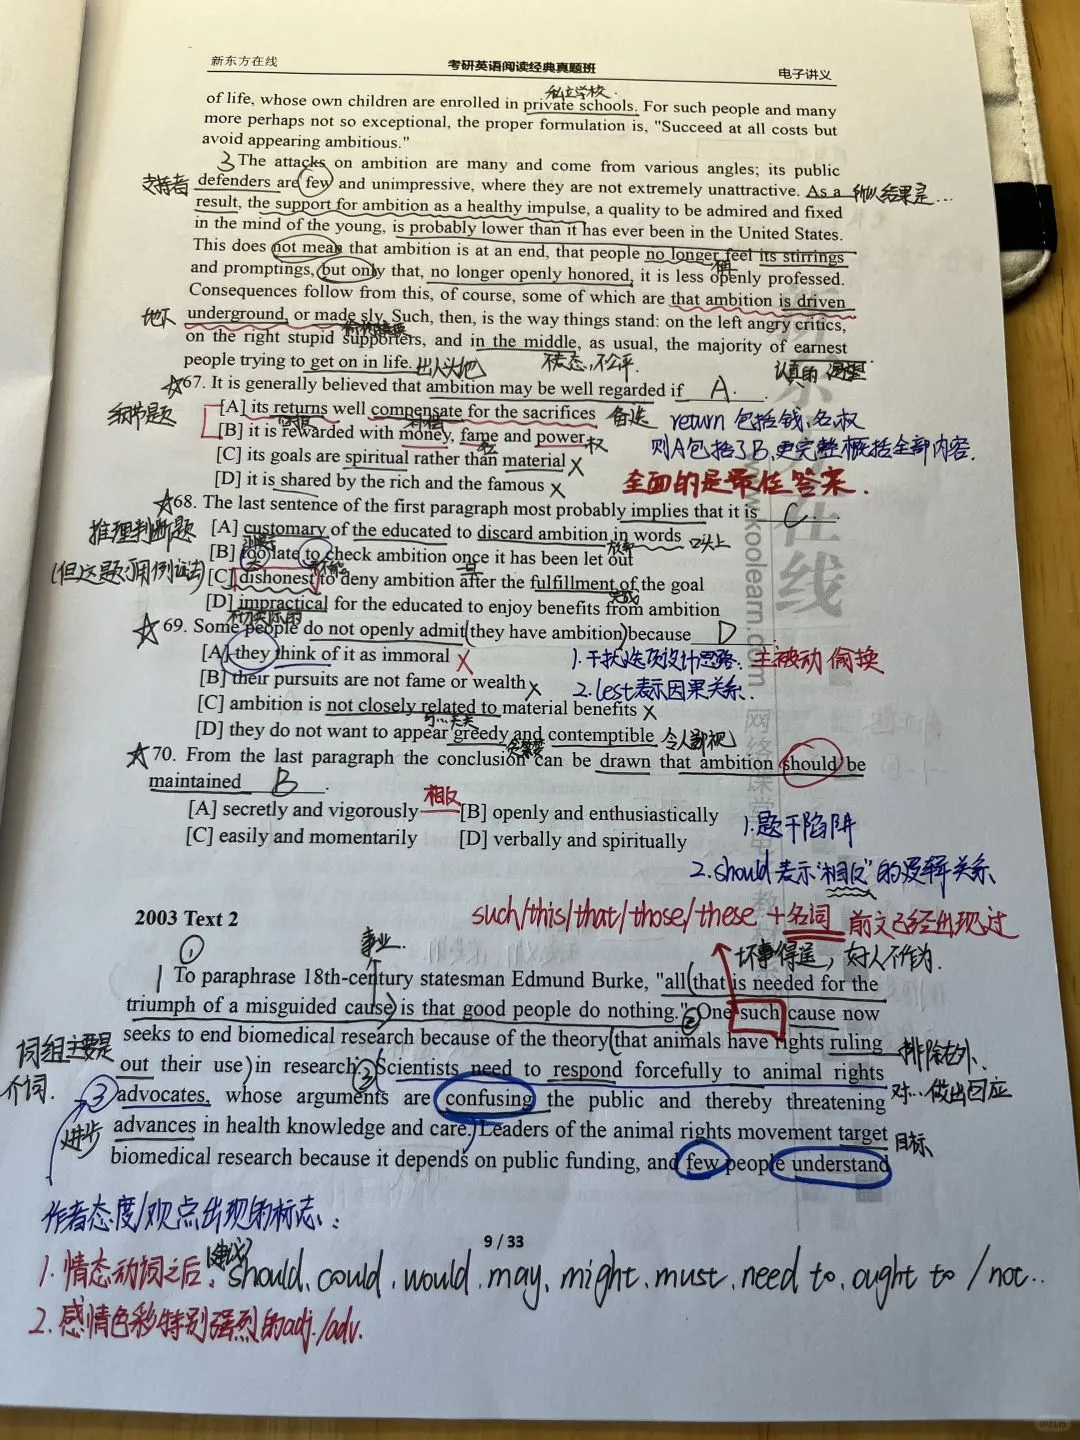 新东方在线 考研英语阅读经典真题班 电子讲义
私立学校.
of life, whose own children are enrolled in private schools. For such people and many
more perhaps not so exceptional, the proper formulation is, "Succeed at all costs but
avoid appearing ambitious."
3 The attacks on ambition are many and come from various angles; its public
支持者 defenders are few and unimpressive, where they are not extremely unattractive. As a 所以结果是...
result, the support for ambition as a healthy impulse, a quality to be admired and fixed
in the mind of the young, is probably lower than it has ever been in the United States.
This does not mean that ambition is at an end, that people no longer feel its stirrings
and promptings, but only that, no longer openly honored, it is less openly professed.
Consequences follow from this, of course, some of which are that ambition is driven
地下 underground, or made sly. Such, then, is the way things stand: on the left angry critics,
on the right stupid supporters, and in the middle, as usual, the majority of earnest
people trying to get on in life. 出人头地 认真的
☆67. It is generally believed that ambition may be well regarded if A.
细节题 [A] its returns well compensate for the sacrifices 备选 return 包括钱、名、权
[B] it is rewarded with money, fame and power 权 则A包括了B,更完整概括全部内容.
[C] its goals are spiritual rather than material X
[D] it is shared by the rich and the famous X 全面的是最佳答案.
☆68. The last sentence of the first paragraph most probably implies that it is C
推理判断题 [A] customary of the educated to discard ambition in words 口头上
[B] too late to check ambition once it has been let out
(但这题用例证法) [C] dishonest to deny ambition after the fulfillment of the goal
完成
[D] impractical for the educated to enjoy benefits from ambition
不切实际的
☆69. Some people do not openly admit (they have ambition) because D
[A] they think of it as immoral X 1. 干扰选项设计思路: 主被动偷换
[B] their pursuits are not fame or wealth X 2. lest表示因果关系.
[C] ambition is not closely related to material benefits X
与…有关
[D] they do not want to appear greedy and contemptible 令人鄙视
贪婪
☆70. From the last paragraph the conclusion can be drawn that ambition should be
maintained B.
[A] secretly and vigorously 相反 [B] openly and enthusiastically
[C] easily and momentarily [D] verbally and spiritually
1. 题干陷阱
2. should 表示"相反"的逻辑关系
2003 Text 2 such/this/that/those/these + 名词 前文已经出现过
① 事业. 坏事得逞, 好人不作为.
1 To paraphrase 18th-century statesman Edmund Burke, "all (that is needed for the
triumph of a misguided cause) is that good people do nothing." ② One such cause now
seeks to end biomedical research because of the theory (that animals have rights ruling 排除在外
词组主要是介词. out their use) in research. ③ Scientists need to respond forcefully to animal rights 对…做出回应
③ advocates, whose arguments are confusing the public and thereby threatening
进步 advances in health knowledge and care. Leaders of the animal rights movement target 目标
biomedical research because it depends on public funding, and few people understand
作者态度/观点出现的标志:
9 / 33
1. 情态动词之后: (建议) should、could、would、may、might、must、need to、ought to / not..
2. 感情色彩特别强烈的adj./adv.
新东方在线
www.koolearn.com
网络课堂电
教材